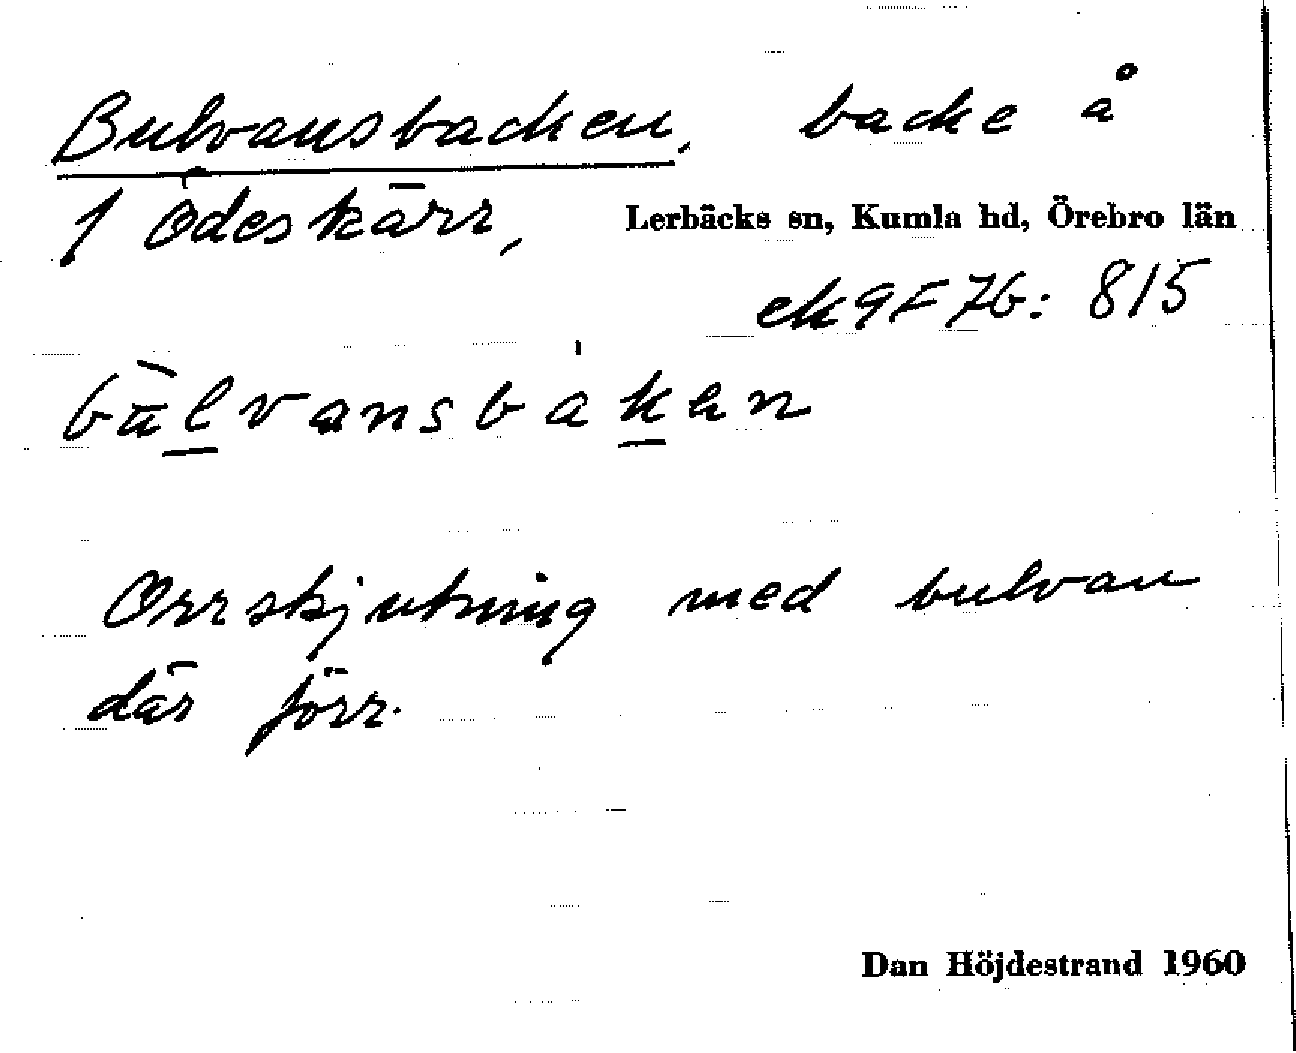 Bulvansbacken, backe å
1 Ödeskärr, Lerbäcks sn, Kumla hd, Örebro län
ek 9F 7b: 815
bùlvansbakan
Orrskjutning med bulvan
där förr.
Dan Höjdestrand 1960